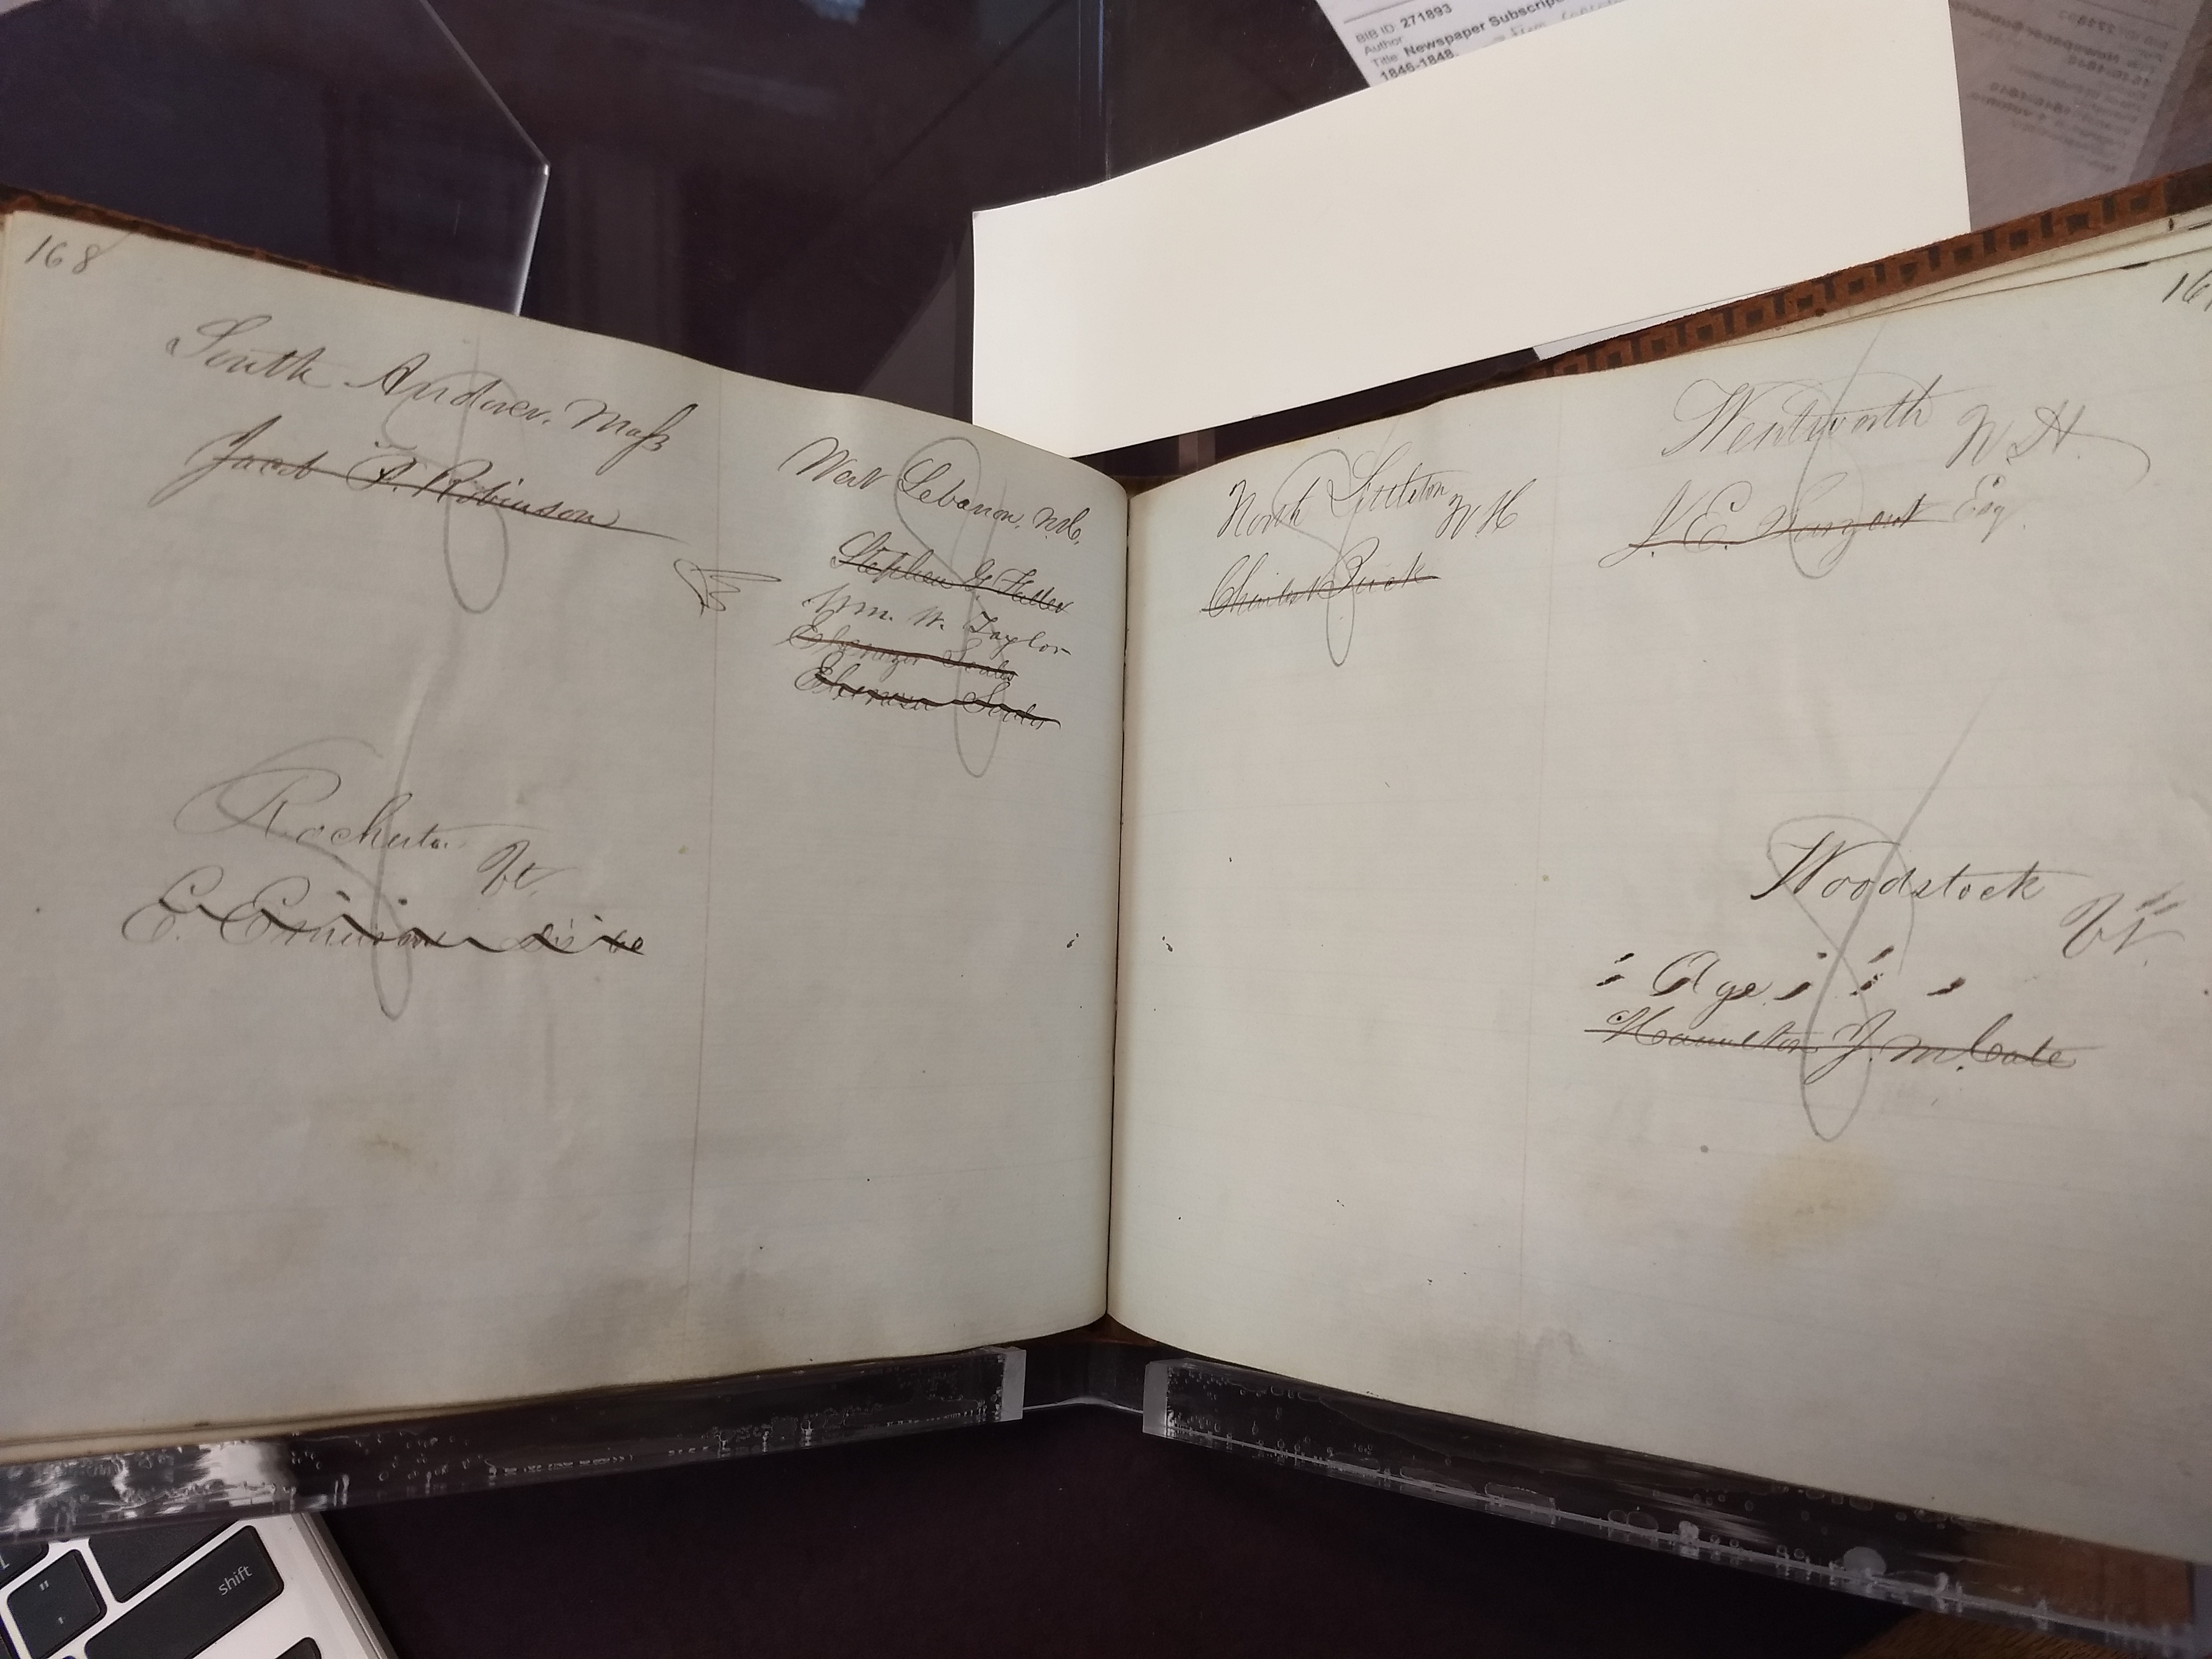 BIB ID: 271893
Author:
Title Newspaper Subscrip
1846-1848.
168
South Andover, Mass
Jacob A. Robinson
West Lebanon, N.H.
Stephen G. Fuller
Wm. W. Taylor
Ebenezer Scales
Ebenezer Scales
Rochester Vt.
E. Emerson
16
North Littleton N H
Charles
Wentworth N. H.
J. E. Sargent Esq
Woodstock Vt.
" Age
Hamilton J. McCate
shift